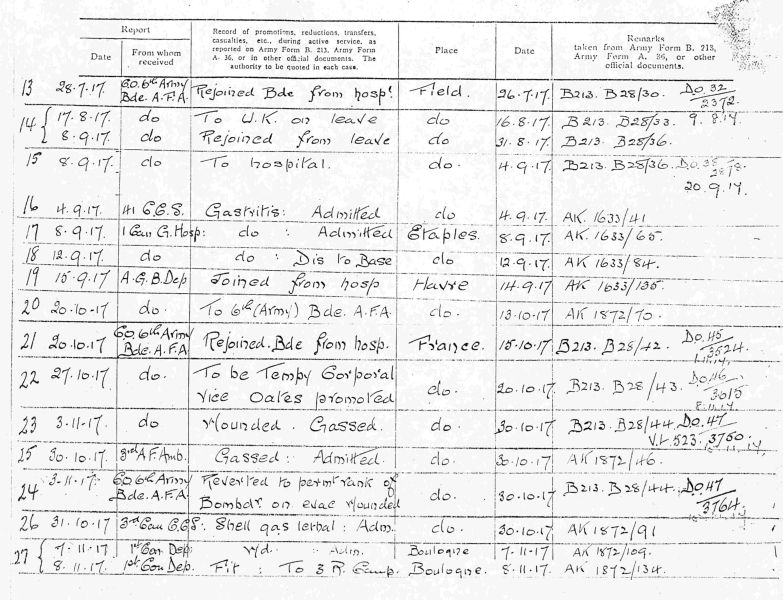 Report
Record of promotions, reductions, transfers, casualties, etc., during active service, as reported on Army Form B. 213, Army Form A. 36, or in other official documents. The authority to be quoted in each case.
Place
Date
Remarks taken from Army Form B. 213, Army Form A. 36, or other official documents.
Date
From whom received
13 28.7.17. C.O. 6th Army Bde. A.F.A. Rejoined Bde from hospl. Field. 26.7.17. B213. B28/30. D.O. 32/2372.
14 17.8.17. do To U.K. on leave do 16.8.17. B213. B28/33. 9.8.17.
8.9.17. do Rejoined from leave do 31.8.17 B213. B28/36.
15 8.9.17. do To hospital. do. 4.9.17. B213. B28/36. D.O.
20.9.17.
16 4.9.17. 41 C.C.S. Gastritis: Admitted do 4.9.17. AK. 1633/41
17 8.9.17. 1 Can G. Hosp: do : Admitted Etaples. 8.9.17. AK. 1633/65.
18 12.9.17. do do : Dis to Base do 12.9.17. AK. 1633/84.
19 15.9.17 A.G.B. Dep Joined from hosp Havre 14.9.17 AK 1633/135.
20 20.10.17 do. To 6th (Army) Bde. A.F.A. do. 13.10.17 AK 1872/70.
21 20.10.17 C.O. 6th Army Bde. A.F.A. Rejoined Bde from hosp. France. 15.10.17. B213. B28/42. D.O. 45/3524.
22 27.10.17. do. To be Tempy Corporal vice Oates promoted do. 20.10.17. B213. B28/43. D.O. 46/3615
8.11.17.
23 3.11.17. do Wounded. Gassed. do. 30.10.17. B213. B28/44. D.O. 47/3750.
V.L. 523.
25 30.10.17. 3rd A.F. Amb. Gassed: Admitted do 30.10.17. AK 1872/46.
24 3.11.17. C.O. 6th Army Bde. A.F.A. Reverted to permt rank of Bombdr on evac wounded do. 30.10.17 B213. B28/44. D.O. 47/3764.
26 31.10.17 3rd Can C.C.S: Shell gas lethal: Adm. do. 30.10.17. AK 1872/91
27 7.11.17 1st Con Dep: Wd. : Adm. Boulogne 7.11.17. AK 1872/109.
8.11.17. 1st Con Dep. Fit : To 3 R. Camp. Boulogne. 8.11.17. AK 1872/134.